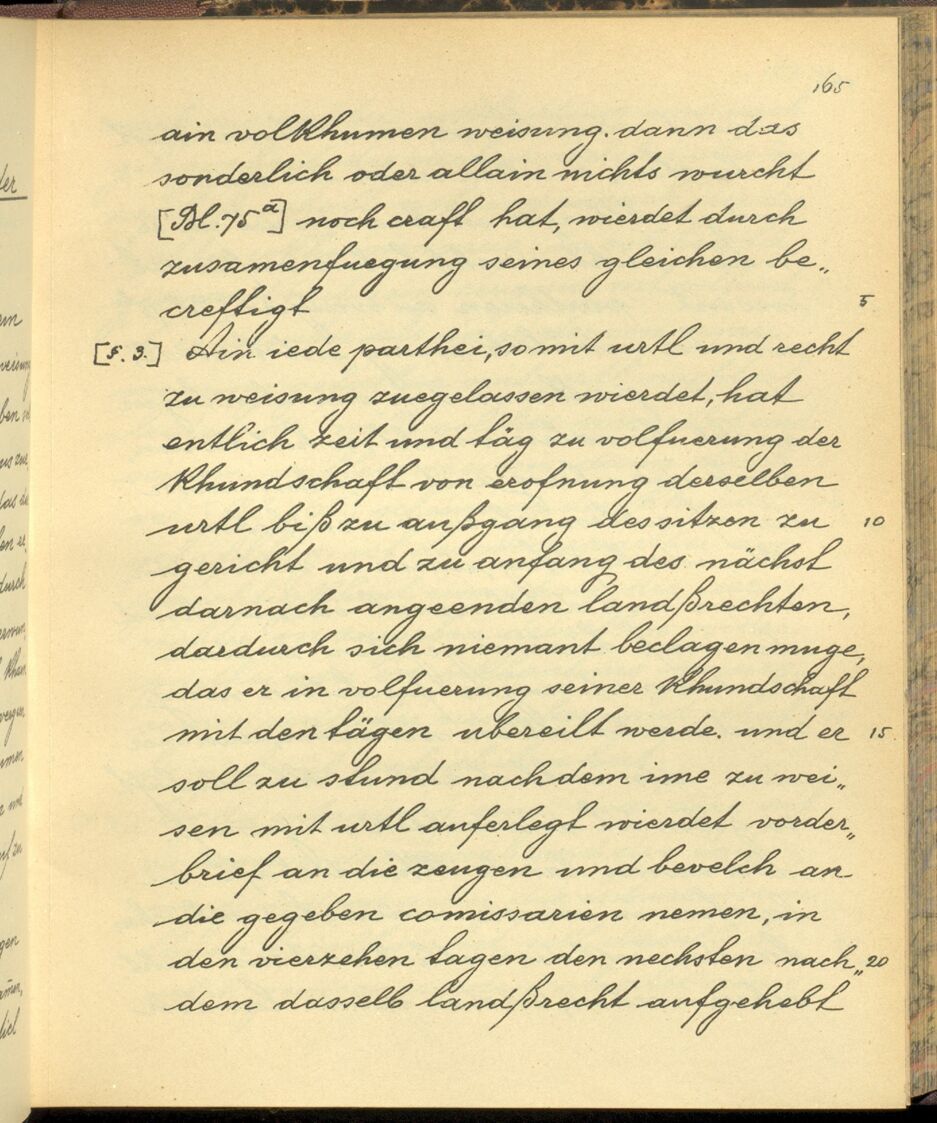 165
ain volkhumen weisung. dann das
sonderlich oder allain nichts wurcht
[Bl. 75a] noch craft hat, wierdet durch
zusamenfuegung seines gleichen be„
creftigt 5
[§. 3.] Ain iede parthei, so mit urtl und recht
zu weisung zuegelassen wierdet, hat
entlich zeit und täg zu volfuerung der
khundschaft von erofnung derselben
urtl biß zu außgang des sitzen zu 10
gericht und zu anfang des nächst
darnach angeenden landßrechten,
dardurch sich niemant beclagen muge,
das er in volfuerung seiner khundschaft
mit den tägen ubereilt werde. und er 15
soll zu stund nachdem ime zu wei„
sen mit urtl auferlegt wierdet vorder„
brief an die zeugen und bevelch an
die gegeben comissarien nemen, in
den vierzehen tagen den nechsten nach„ 20
dem dasselb landßrecht aufgehebt